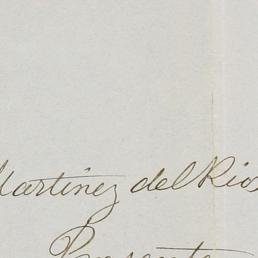 Martinez del Rio
Presente